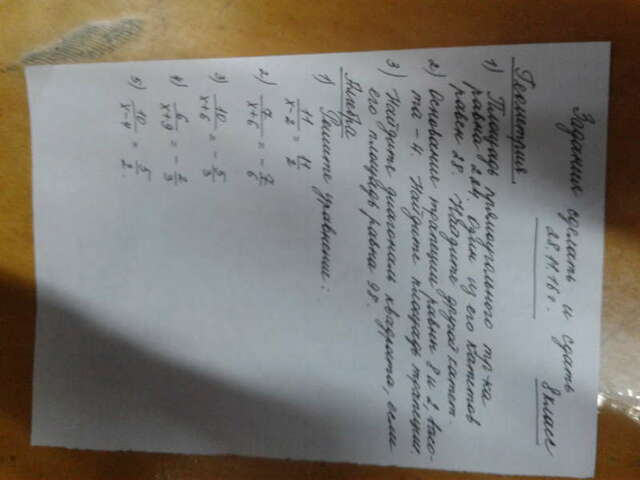 Задания сделать и сдать
28.11.16 г. 8 класс
Геометрия.
1) Площадь прямоугольного тр-ка
равна 224. Один из его катетов
равен 28. Найдите другой катет.
2) Основание трапеции равны 8 и 2, высо-
та - 4. Найдите площадь трапеции.
3) Найдите диагональ квадрата, если
его площадь равна 98.
Алгебра
1) Решите уравнение:
11/(x-2) = 11/2
2) 7/(x+6) = - 7/6
3) 10/(x+6) = - 5/3
4) 6/(x+9) = - 2/3
5) 10/(x-4) = 5/2.